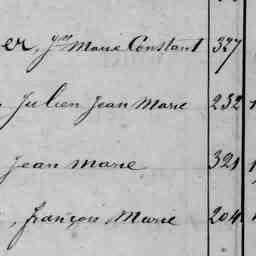 er, Yves Marie Constant 327
, Julien Jean Marie 232
Jean Marie 321
, françois Marie 204